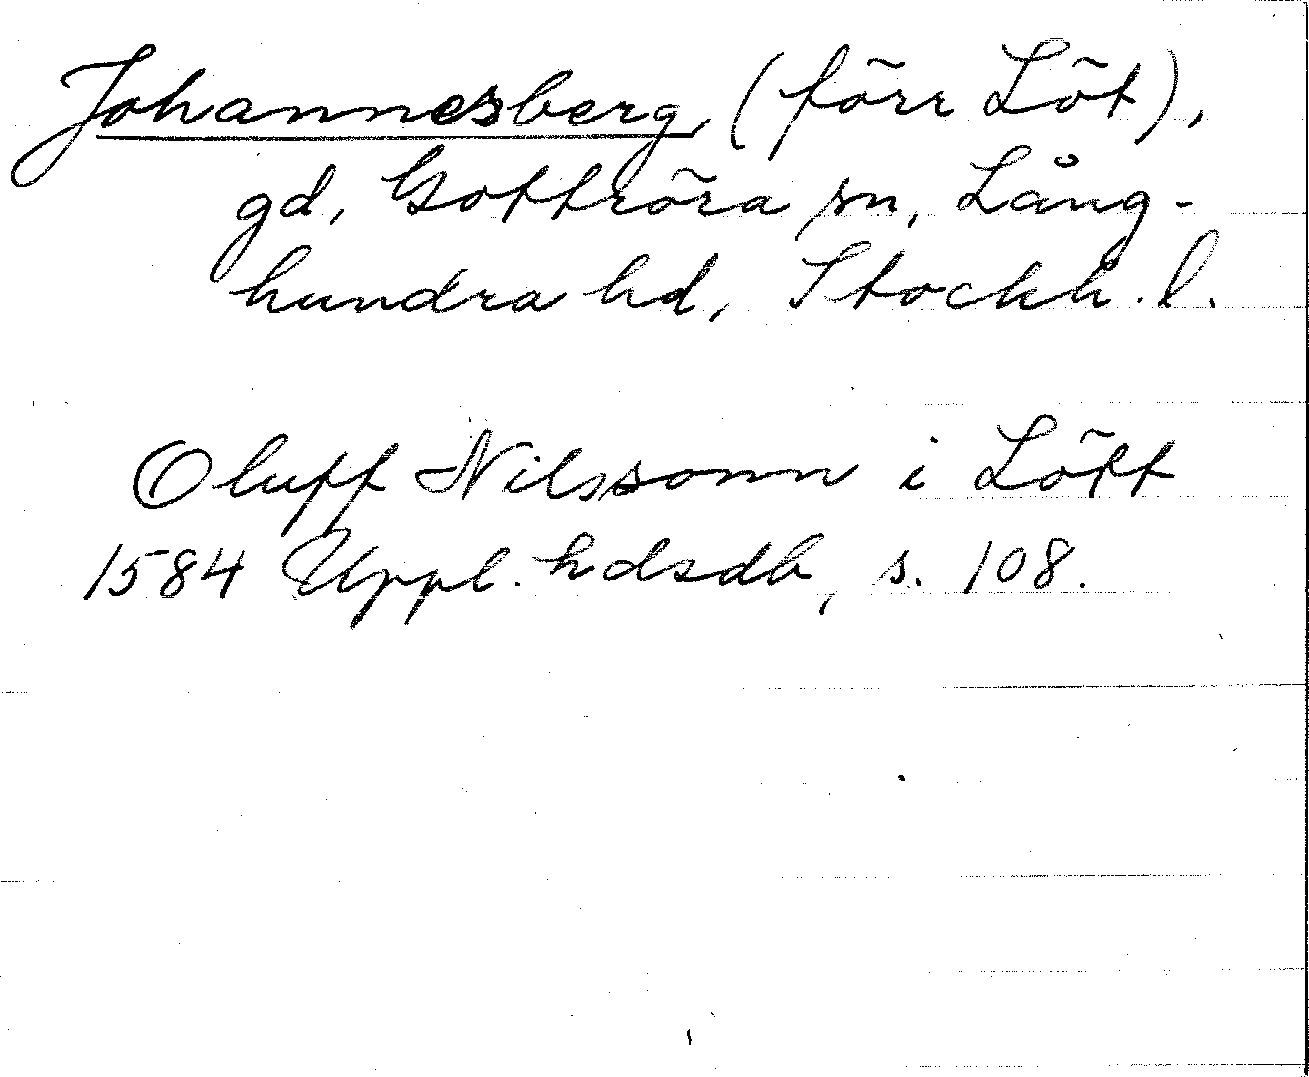 Johannesberg, (förr Löt),
gd, Gottröra sn, Lång-
hundra hd, Stockh. l.
Oluff Nilssonn i Lött
1584 Uppl. hdsdb, s. 108.